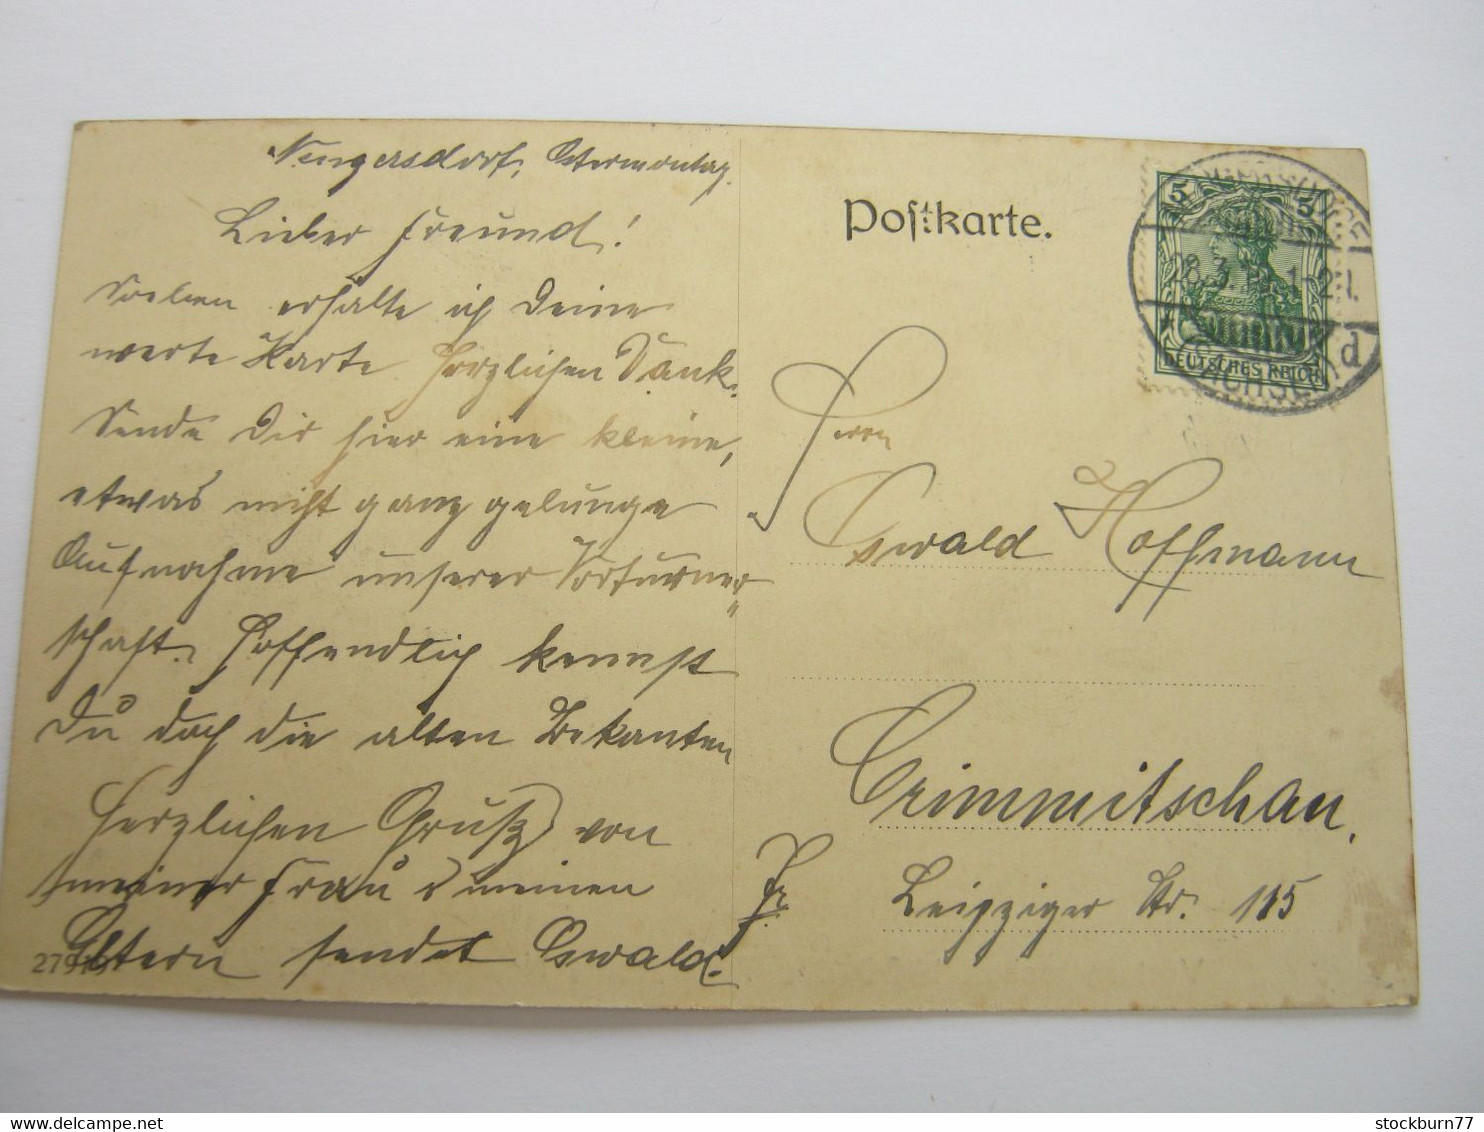 Neugersdorf, Ostermontag.
Lieber Freund!
Soeben erhalte ich Deine
werte Karte herzlichen Dank.
Sende Dir hier eine kleine,
etwas nicht ganz gelunge
Aufnahme unserer Vorturner-
schaft. Hoffendlich kennst
Du doch die alten Bekanten
Herzlichen Gruß von
meiner Frau u meinen
Eltern sendet Oswald.
Postkarte.
5 5
28.3. 1-2N.
d
DEUTSCHES REICH
Herrn
Oswald Hoffmann
Crimmitschau,
Leipziger Str. 115
stockburn77